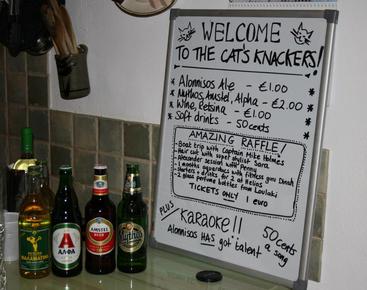 WELCOME
TO THE CAT'S KNACKERS!
* Alonnisos Ale - €1.00
* Mythos, Amstel, Alpha - €2.00 *
* Wine, Retsina - €1.00 *
* Soft drinks - 50 cents *
AMAZING RAFFLE!
- Boat trip with Captain Mike Holmes
- Hair cut with super stylist Sara
- Alexander session with Penny
- 1 months aquarobics with fitness guru Dinah
- Starters + drinks for 2 at Helios
- 2 glass perfume bottles from
TICKETS ONLY 1 euro
PLUS
KARAOKE!! 50 cents
Alonnisos HAS got talent a song
ΜΑΛΑΜΑΤΙΝΑ
A
ΑΛΦΑ
AMSTEL
BEER
Mythos